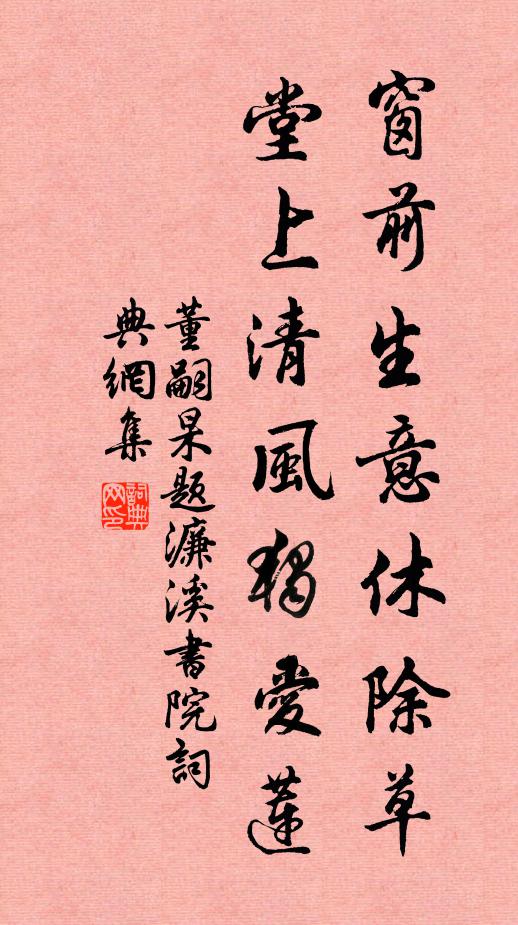 窗前生意休除草
堂上清風獨愛蓮
董嗣杲題濂溪書院詞
典網集
詞典網印